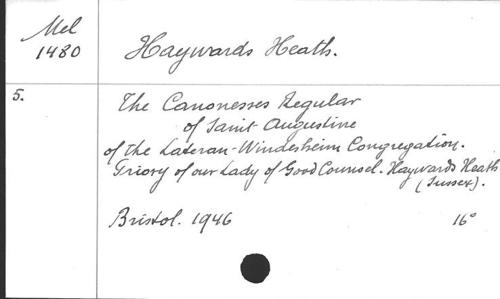 Mel
1480
Haywards Heath.
5.
The Canonesses Regular
of Saint Augustine
of the Lateran-Windesheim Congregation.
Priory of our Lady of Good Counsel. Haywards Heath
(Sussex).
Bristol. 1946
16°